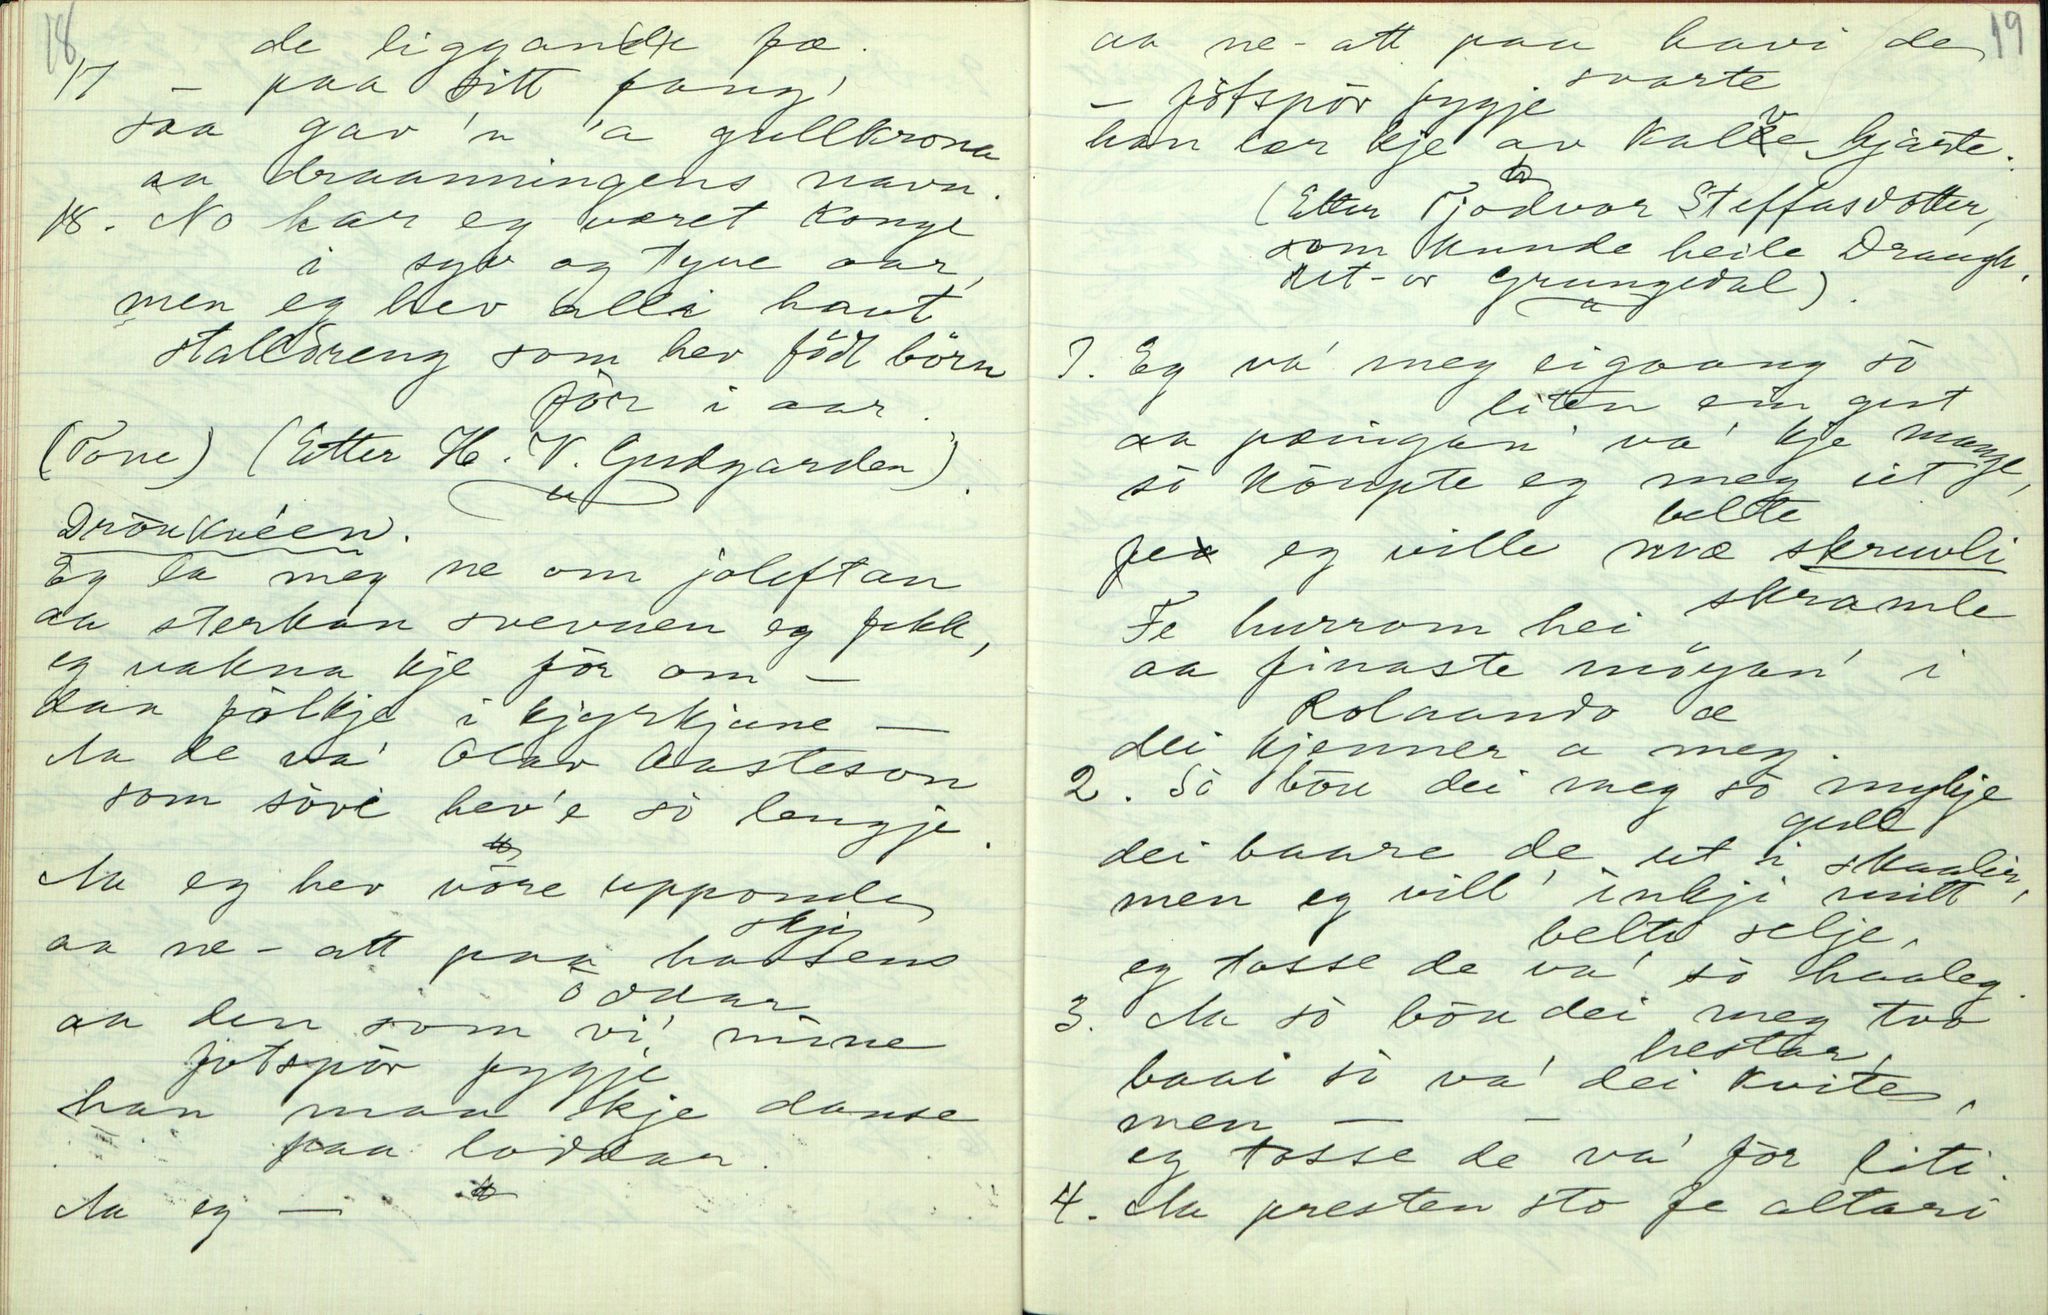 18
de liggande fæ.
17 – paa sitt fang,
saa gav 'n 'a gullkrona
aa draanningens navn.
18. No har eg været konge
i syv og tyve aar,
men eg hev alli havt
stalldreng som hev födt börn
för i aar.
(Tone) (Etter H. N. Gudgarden).
Dröukvéen.
Eg la meg ne om joleftan
aa sterkan svevnen eg fekk,
eg vakna kje för om –
daa fölkje i kjyrkjune –
Aa de va' Olav Aasteson
som sövi hev'e sö lengje.
Aa eg hev vöre upponde
skjy
aa ne-att paa havsens
oddar
aa den som vi' mine
fotspör fygje
han maa kje danse
paa loddar.
Aa eg –
19
aa ne-att paa havi de
svarte
– fötspör fygje
han lær kje av kalve hjarte.
(Etter Tjodvor Steffasdotter,
som kunde heile Draugk.
ket-or Grungedal).
1. Eg va' meg eigaang sö
liten ein gut
aa pæingan' va' kje mange,
sö köupte eg meg eit
belte
fe eg ville mæ skruvli
skramle
Fe hurrom hei
aa finaste möyan' i
Rolaando æ
dei kjenner a meg.
2. Sö böu dei meg sö mykje
gull
dei baare de ut i skaaler,
men eg vill' inkji mitt
belte selje,
eg tosse de va' sö haaleg.
3. Aa sö böu dei meg two
hestar,
baai sö va' dei kvite,
men – –
eg tosse de va' för liti.
4. Aa presten sto fe altari